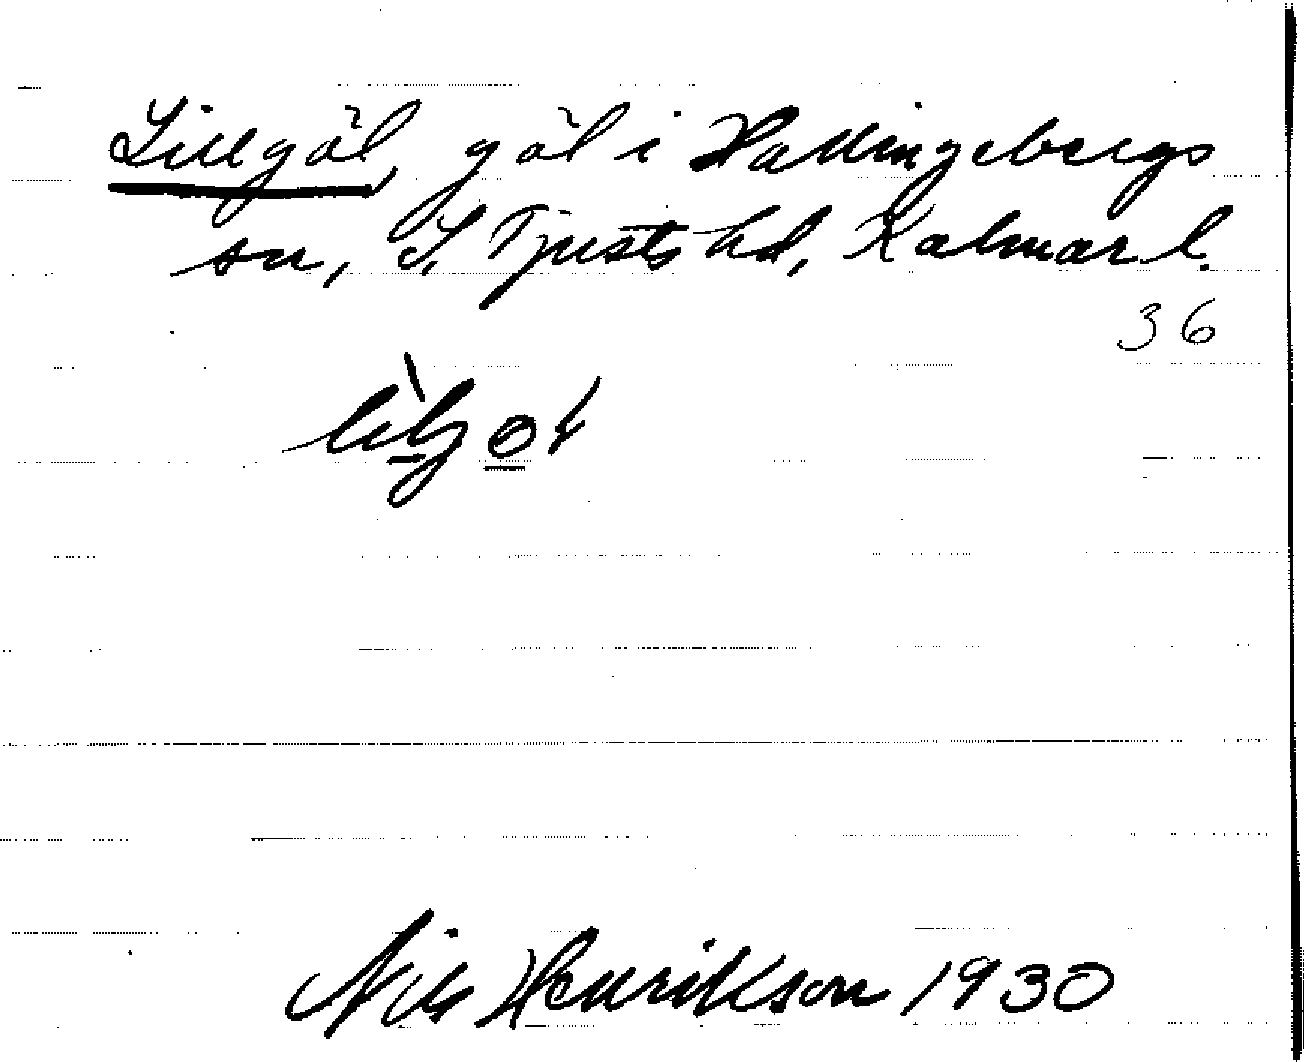 Lillgöl, göl i Hallingebergs
sn, S. Tjusts hd, Kalmar l.
36
Nils Henrikson 1930